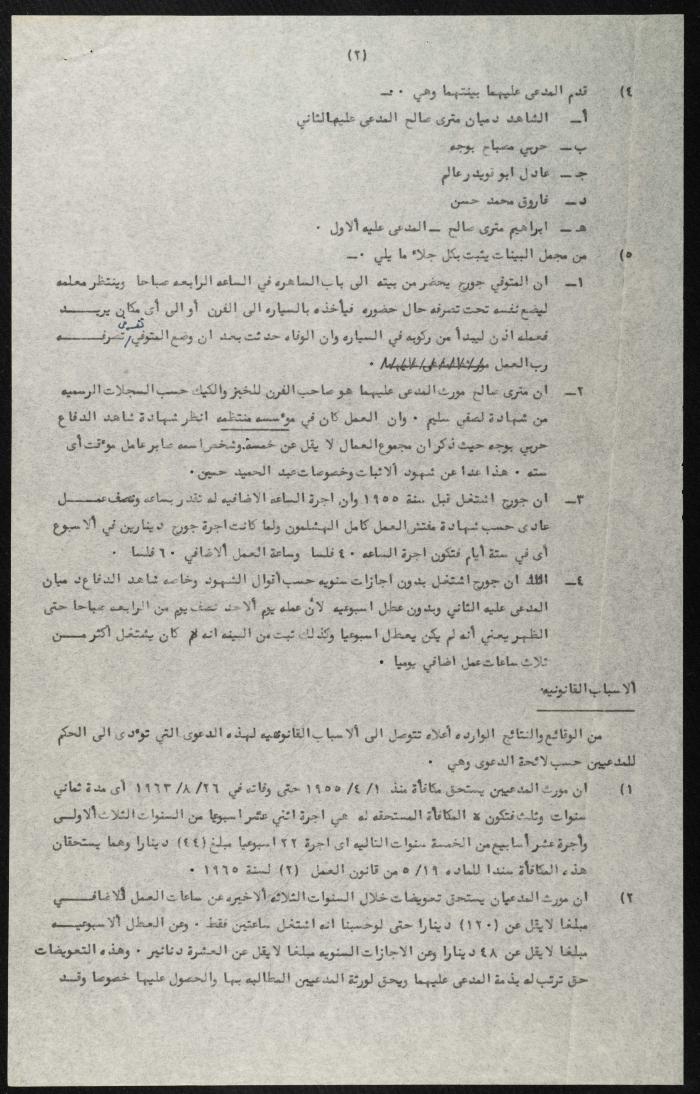 (٢)
٤) قدم المدعى عليهما بينتهما وهي .ـ
أـ الشاهد دميان مترى صالح المدعى عليه الثاني
بـ حربي مصباح بوجه
جـ عادل ابو نويدر عالم
دـ فاروق محمد حسن
هـ ابراهيم مترى صالح ـ المدعى عليه الاول .
٥) من مجمل البينات يثبت بكل جلاء ما يلي .ـ
١ـ ان المتوفي جورج يحضر من بيته الى باب الساهره في الساعه الرابعه صباحا وينتظر معلمه
ليضع نفسه تحت تصرفه حال حضوره فيأخذه بالسياره الى الفرن أو الى أى مكان يريــــد
فعمله اذن ليبدأ من ركوبه في السياره وان الوفاه حدثت بعد ان وضع المتوفي/ نفسه تصرفـــه
رب العمل .
٢ـ ان مترى صالح مورث المدعى عليهما هو صاحب الفرن للخبز والكيك حسب السجلات الرسميه
من شهادة لصفي سليم . وان العمل كان في مؤسسه منتظمه انظر شهادة شاهد الدفاع
حربي بوجه حيث ذكر ان مجموع العمال لا يقل عن خمسة وشخص اسمه صابر عامل مؤقت أى
سته . هذا عدا عن شهود الاثبات وخصوصا عبد الحميد حسين .
٣ـ ان جورج اشتغل قبل سنة ١٩٥٥ وان اجرة الساعه الاضافيه له تقدر بساعه ونصف عمـــل
عادى حسب شهادة مفتش العمل كامل الهشلمون ولما كانت اجرة جورج دينارين في الاسبوع
أى في ستة أيام فتكون اجرة الساعه ٤٠ فلسا وساعة العمل الاضافي ٦٠ فلسا .
٤ـ ان جورج اشتغل بدون اجازات سنويه حسب أقوال الشهود وخاصه شاهد الدفاع دميان
المدعى عليه الثاني وبدون عطل اسبوعيه لأن عمله يوم الاحد نصف يوم من الرابعه صباحا حتى
الظهر يعني أنه لم يكن يعطل اسبوعيا وكذلك ثبت من البينه انه كان يشتغل أكثر مـــن
ثلاث ساعات عمل اضافي يوميا .
الاسباب القانونيه
من الوقائع والنتائج الوارده أعلاه تتوصل الى الاسباب القانونيه لهذه الدعوى التي تؤدى الى الحكم
للمدعيين حسب لائحة الدعوى وهي .
١) ان مورث المدعيين يستحق مكافأة منذ ١/ ٤/ ١٩٥٥ حتى وفاته في ٢٦/ ٨/ ١٩٦٣ أى مدة ثماني
سنوات وثلث فتكون المكافأة المستحقه له هي اجرة اثني عشر اسبوعا من السنوات الثلاث الاولــى
وأجرة عشر أسابيع من الخمسة سنوات التاليه اى اجرة ٢٢ اسبوعيا مبلغ (٤٤) دينارا وهما يستحقان
هذه المكافأة سندا للماده ١٩/ ٥ من قانون العمل (٢) لسنة ١٩٦٥ .
٢) ان مورث المدعيان يستحق تعويضات خلال السنوات الثلاثه الاخيره عن ساعات العمل الاضافــي
مبلغا لايقل عن (١٢٠) دينارا حتى لوحسبنا انه اشتغل ساعتين فقط . وعن العطل الاسبوعيـــه
مبلغا لايقل عن ٤٨ دينارا وعن الاجازات السنويه مبلغا لايقل عن العشرة دنانير . وهذه التعويضات
حق ترتب له بذمة المدعى عليهما ويحق لورثة المدعيين المطالبه بها والحصول عليها خصوصا وقــد